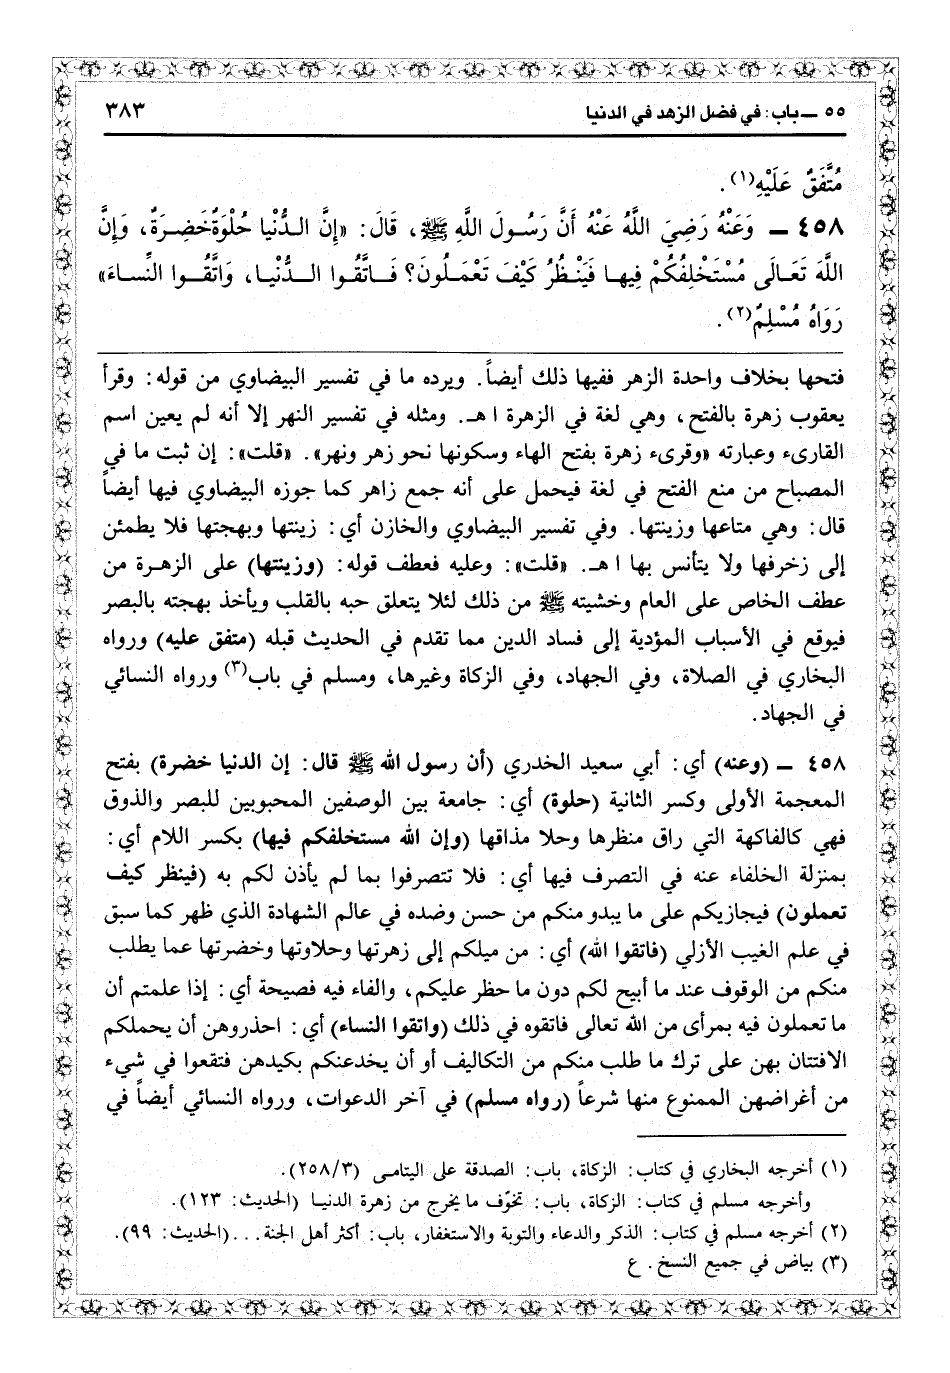 ٥٥ ــ باب: في فضل الزهد في الدنيا ٣٨٣
مُتَّفَقٌ عَلَيْهِ(١).
٤٥٨ ــ وَعَنْهُ رَضِيَ اللَّهُ عَنْهُ أَنَّ رَسُولَ اللَّهِ ﷺ، قَالَ: «إِنَّ الدُّنْيا حُلْوَةٌ خَضِرَةٌ، وَإِنَّ
اللَّهَ تَعَالَى مُسْتَخْلِفُكُمْ فِيها فَيَنْظُرُ كَيْفَ تَعْمَلُونَ؟ فَاتَّقُوا الدُّنْيا، وَاتَّقُوا النِّساءَ»
رَوَاهُ مُسْلِمٌ(٢).
فتحها بخلاف واحدة الزهر ففيها ذلك أيضاً. ويرده ما في تفسير البيضاوي من قوله: وقرأ
يعقوب زهرة بالفتح، وهي لغة في الزهرة ا هـ. ومثله في تفسير النهر إلا أنه لم يعين اسم
القارىء وعبارته «وقرىء زهرة بفتح الهاء وسكونها نحو زهر ونهر». «قلت»: إن ثبت ما في
المصباح من منع الفتح في لغة فيحمل على أنه جمع زاهر كما جوزه البيضاوي فيها أيضاً
قال: وهي متاعها وزينتها. وفي تفسير البيضاوي والخازن أي: زينتها وبهجتها فلا يطمئن
إلى زخرفها ولا يتأنس بها ا هـ. «قلت»: وعليه فعطف قوله: (وزينتها) على الزهرة من
عطف الخاص على العام وخشيته ﷺ من ذلك لئلا يتعلق حبه بالقلب ويأخذ بهجته بالبصر
فيوقع في الأسباب المؤدية إلى فساد الدين مما تقدم في الحديث قبله (متفق عليه) ورواه
البخاري في الصلاة، وفي الجهاد، وفي الزكاة وغيرها، ومسلم في باب(٣) ورواه النسائي
في الجهاد.
٤٥٨ ــ (وعنه) أي: أبي سعيد الخدري (أن رسول الله ﷺ قال: إن الدنيا خضرة) بفتح
المعجمة الأولى وكسر الثانية (حلوة) أي: جامعة بين الوصفين المحبوبين للبصر والذوق
فهي كالفاكهة التي راق منظرها وحلا مذاقها (وإن الله مستخلفكم فيها) بكسر اللام أي:
بمنزلة الخلفاء عنه في التصرف فيها أي: فلا تتصرفوا بما لم يأذن لكم به (فينظر كيف
تعملون) فيجازيكم على ما يبدو منكم من حسن وضده في عالم الشهادة الذي ظهر كما سبق
في علم الغيب الأزلي (فاتقوا الله) أي: من ميلكم إلى زهرتها وحلاوتها وخضرتها عما يطلب
منكم من الوقوف عند ما أبيح لكم دون ما حظر عليكم، والفاء فيه فصيحة أي: إذا علمتم أن
ما تعملون فيه بمرأى من الله تعالى فاتقوه في ذلك (واتقوا النساء) أي: احذروهن أن يحملكم
الافتتان بهن على ترك ما طلب منكم من التكاليف أو أن يخدعنكم بكيدهن فتقعوا في شيء
من أغراضهن الممنوع منها شرعاً (رواه مسلم) في آخر الدعوات، ورواه النسائي أيضاً في
(١) أخرجه البخاري في كتاب: الزكاة، باب: الصدقة على اليتامى (٢٥٨/٣).
وأخرجه مسلم في كتاب: الزكاة، باب: تخوّف ما يخرج من زهرة الدنيا (الحديث: ١٢٣).
(٢) أخرجه مسلم في كتاب: الذكر والدعاء والتوبة والاستغفار، باب: أكثر أهل الجنة...(الحديث: ٩٩).
(٣) بياض في جميع النسخ. ع